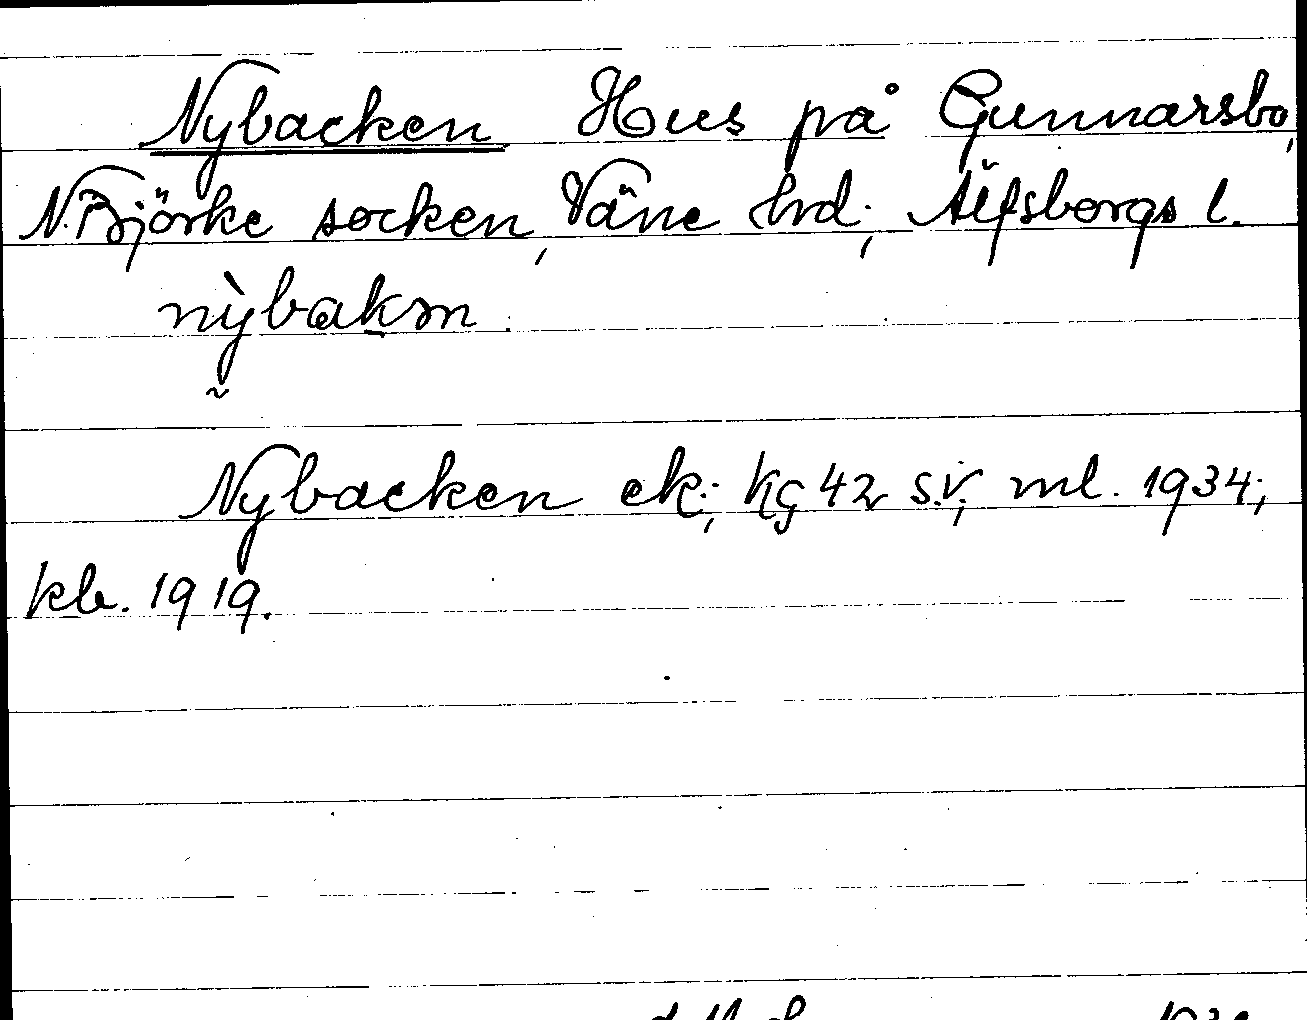 Nybacken Hus på Gunnarsbo,
N. Björke socken, Väne hrd; Älfsborgs l.
nỳbakən.
Nybacken ek; Kg 42 s.v; ml. 1934;
kb. 1919.